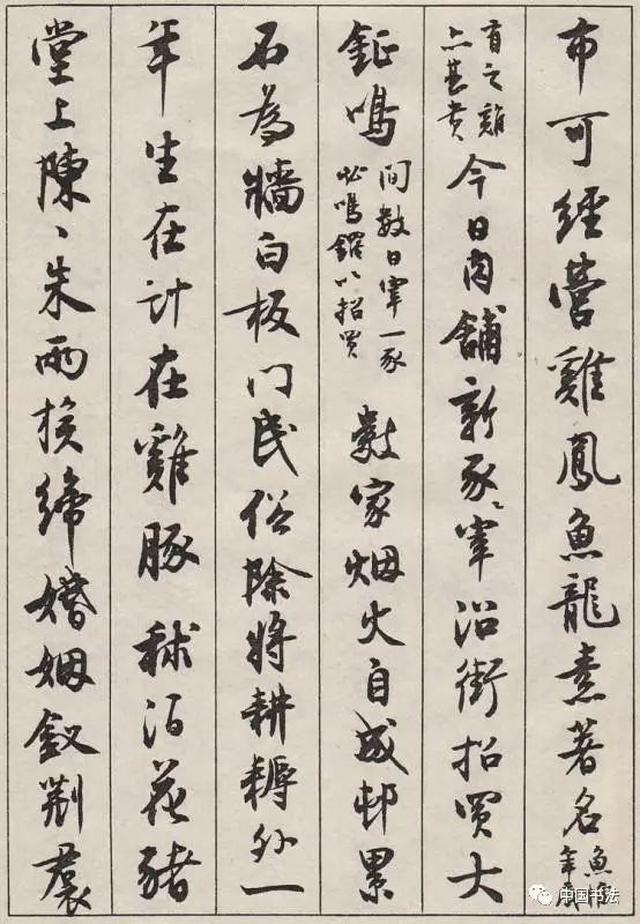 布可經營雞鳳魚龍素著名魚
有之雞亦甚貴今日肉鋪新豕、宰沿街招買大
鉦鳴間數日宰一豕必鳴鑼以招買數家烟火自成邨累
石為牆白板门民俗除將耕耨外一
年生在計在雞豚秫酒花豬
堂上陳、朱兩族締婚姻釵荆裠
中国书法